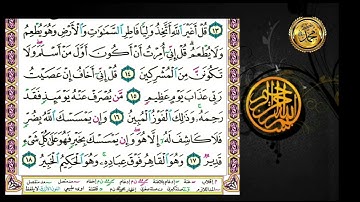 ١٣ قُلْ أَغَيْرَ ٱللَّهِ أَتَّخِذُ وَلِيًّا فَاطِرِ ٱلسَّمَٰوَٰتِ وَٱلْأَرْضِ وَهُوَ يُطْعِمُ
وَلَا يُطْعَمُ ۗ قُلْ إِنِّىٓ أُمِرْتُ أَنْ أَكُونَ أَوَّلَ مَنْ أَسْلَمَ ۖ وَلَا
تَكُونَنَّ مِنَ ٱلْمُشْرِكِينَ ١٤ قُلْ إِنِّىٓ أَخَافُ إِنْ عَصَيْتُ
رَبِّى عَذَابَ يَوْمٍ عَظِيمٍ ١٥ مَّن يُصْرَفْ عَنْهُ يَوْمَئِذٍ فَقَدْ
رَحِمَهُۥ ۚ وَذَٰلِكَ ٱلْفَوْزُ ٱلْمُبِينُ ١٦ وَإِن يَمْسَسْكَ ٱللَّهُ بِضُرٍّ
فَلَا كَاشِفَ لَهُۥٓ إِلَّا هُوَ ۖ وَإِن يَمْسَسْكَ بِخَيْرٍ فَهُوَ عَلَىٰ كُلِّ شَىْءٍ
قَدِيرٌ ١٧ وَهُوَ ٱلْقَاهِرُ فَوْقَ عِبَادِهِۦ ۚ وَهُوَ ٱلْحَكِيمُ ٱلْخَبِيرُ ١٨
محمد
بسم الله الرحمن الرحيم